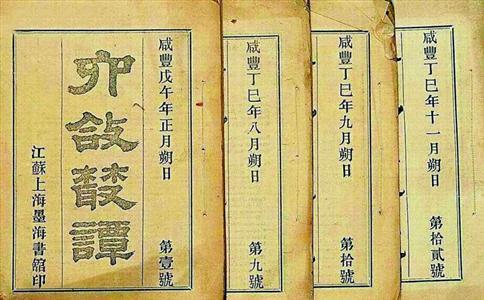 咸豐丁巳年十一月朔日 第拾貳號
咸豐丁巳年九月朔日 第拾號
咸豐丁巳年八月朔日 第九號
咸豐戊午年正月朔日 第壹號
六合叢譚
江蘇上海墨海書舘印